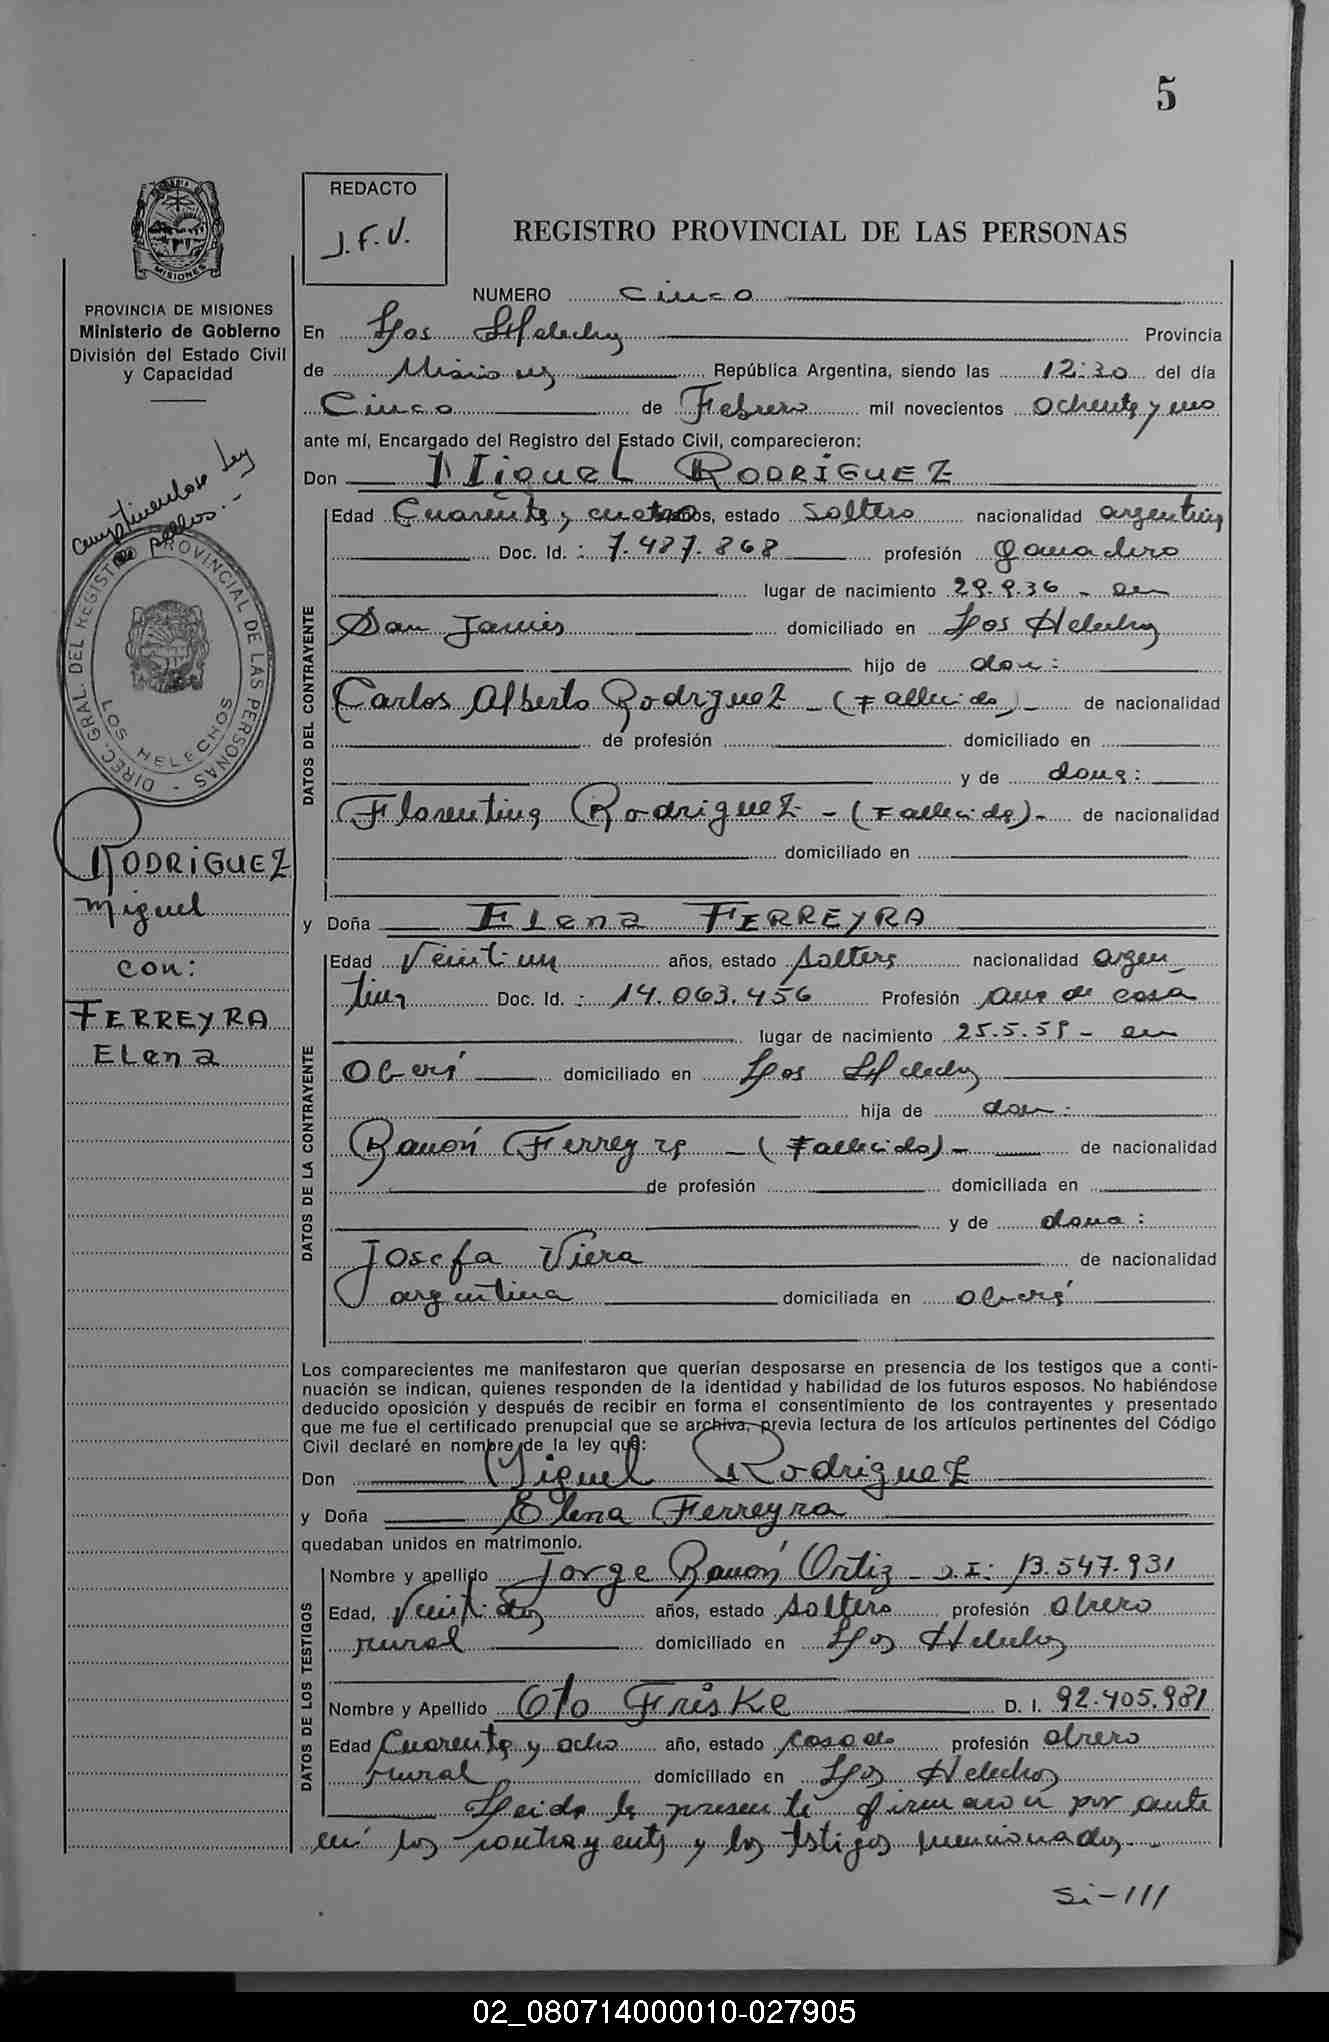 5
REDACTO
J.F.V.
REGISTRO PROVINCIAL DE LAS PERSONAS
MISIONES
PROVINCIA DE MISIONES
Ministerio de Gobierno
División del Estado Civil
y Capacidad
cumplimentose Ley
de sellos.-
DIREC. GRAL. DEL REGISTRO PROVINCIAL DE LAS PERSONAS -
LOS HELECHOS
RODRIGUEZ
Miguel
con:
FERREYRA
Elena
NUMERO cinco
En Los Helechos Provincia
de Misiones República Argentina, siendo las 12:30 del día
Cinco de Febrero mil novecientos ochenta y uno
ante mí, Encargado del Registro del Estado Civil, comparecieron:
Don Miguel RODRIGUEZ
DATOS DEL CONTRAYENTE
Edad Cuarenta y cuatro años, estado soltero nacionalidad argentina
Doc. Id. : 7.487.868 profesión ganadero
lugar de nacimiento 29.9.36 - en
San Javier domiciliado en Los Helechos
hijo de don:
Carlos Alberto Rodriguez - (Fallecido)- de nacionalidad
de profesión domiciliado en
y de doña:
Florentina Rodriguez - (Fallecida)- de nacionalidad
domiciliado en
y Doña Elena FERREYRA
DATOS DE LA CONTRAYENTE
Edad Veintiun años, estado soltera nacionalidad argen
tina Doc. Id. : 14.063.456 Profesión ama de casa
lugar de nacimiento 25.5.59 - en
Oberá domiciliado en Los Helechos
hija de don:
Ramón Ferreyra - (Fallecido)- de nacionalidad
de profesión domiciliada en
y de doña:
Josefa Viera de nacionalidad
argentina domiciliada en Oberá
Los comparecientes me manifestaron que querían desposarse en presencia de los testigos que a conti-
nuación se indican, quienes responden de la identidad y habilidad de los futuros esposos. No habiéndose
deducido oposición y después de recibir en forma el consentimiento de los contrayentes y presentado
que me fue el certificado prenupcial que se archiva, previa lectura de los artículos pertinentes del Código
Civil declaré en nombre de la ley que:
Don Miguel Rodriguez
y Doña Elena Ferreyra
quedaban unidos en matrimonio.
DATOS DE LOS TESTIGOS
Nombre y apellido Jorge Ramón Ortiz - D.I: 13.547.931
Edad, Veintidos años, estado soltero profesión obrero
rural domiciliado en Los Helechos
Nombre y Apellido Oto Friske D. I. 92.405.981
Edad Cuarenta y ocho año, estado casado profesión obrero
rural domiciliado en Los Helechos
Leida la presente firmaron por ante
mi los contrayentes y los testigos mencionados.-
Si-///
02_080714000010-027905